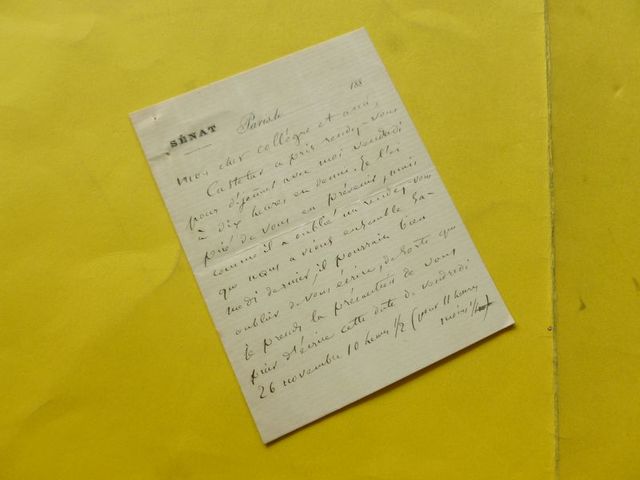 SÉNAT
Paris, le 188
Mon cher collègue et ami,
Castelar a pris rendez-vous
pour déjeuner avec moi vendredi
à dix heures en demi. Je l'ai
prié de vous en prévenir, mais
comme il a oublié un rendez-vous
que nous avions ensemble sa-
medi dernier, il pourrait bien
oublier de vous écrire, de sorte que
je prends la précaution de vous
écrire cette date de vendredi
26 novembre 10 heures 1/2 (pour 11 heures
moins 1/4)